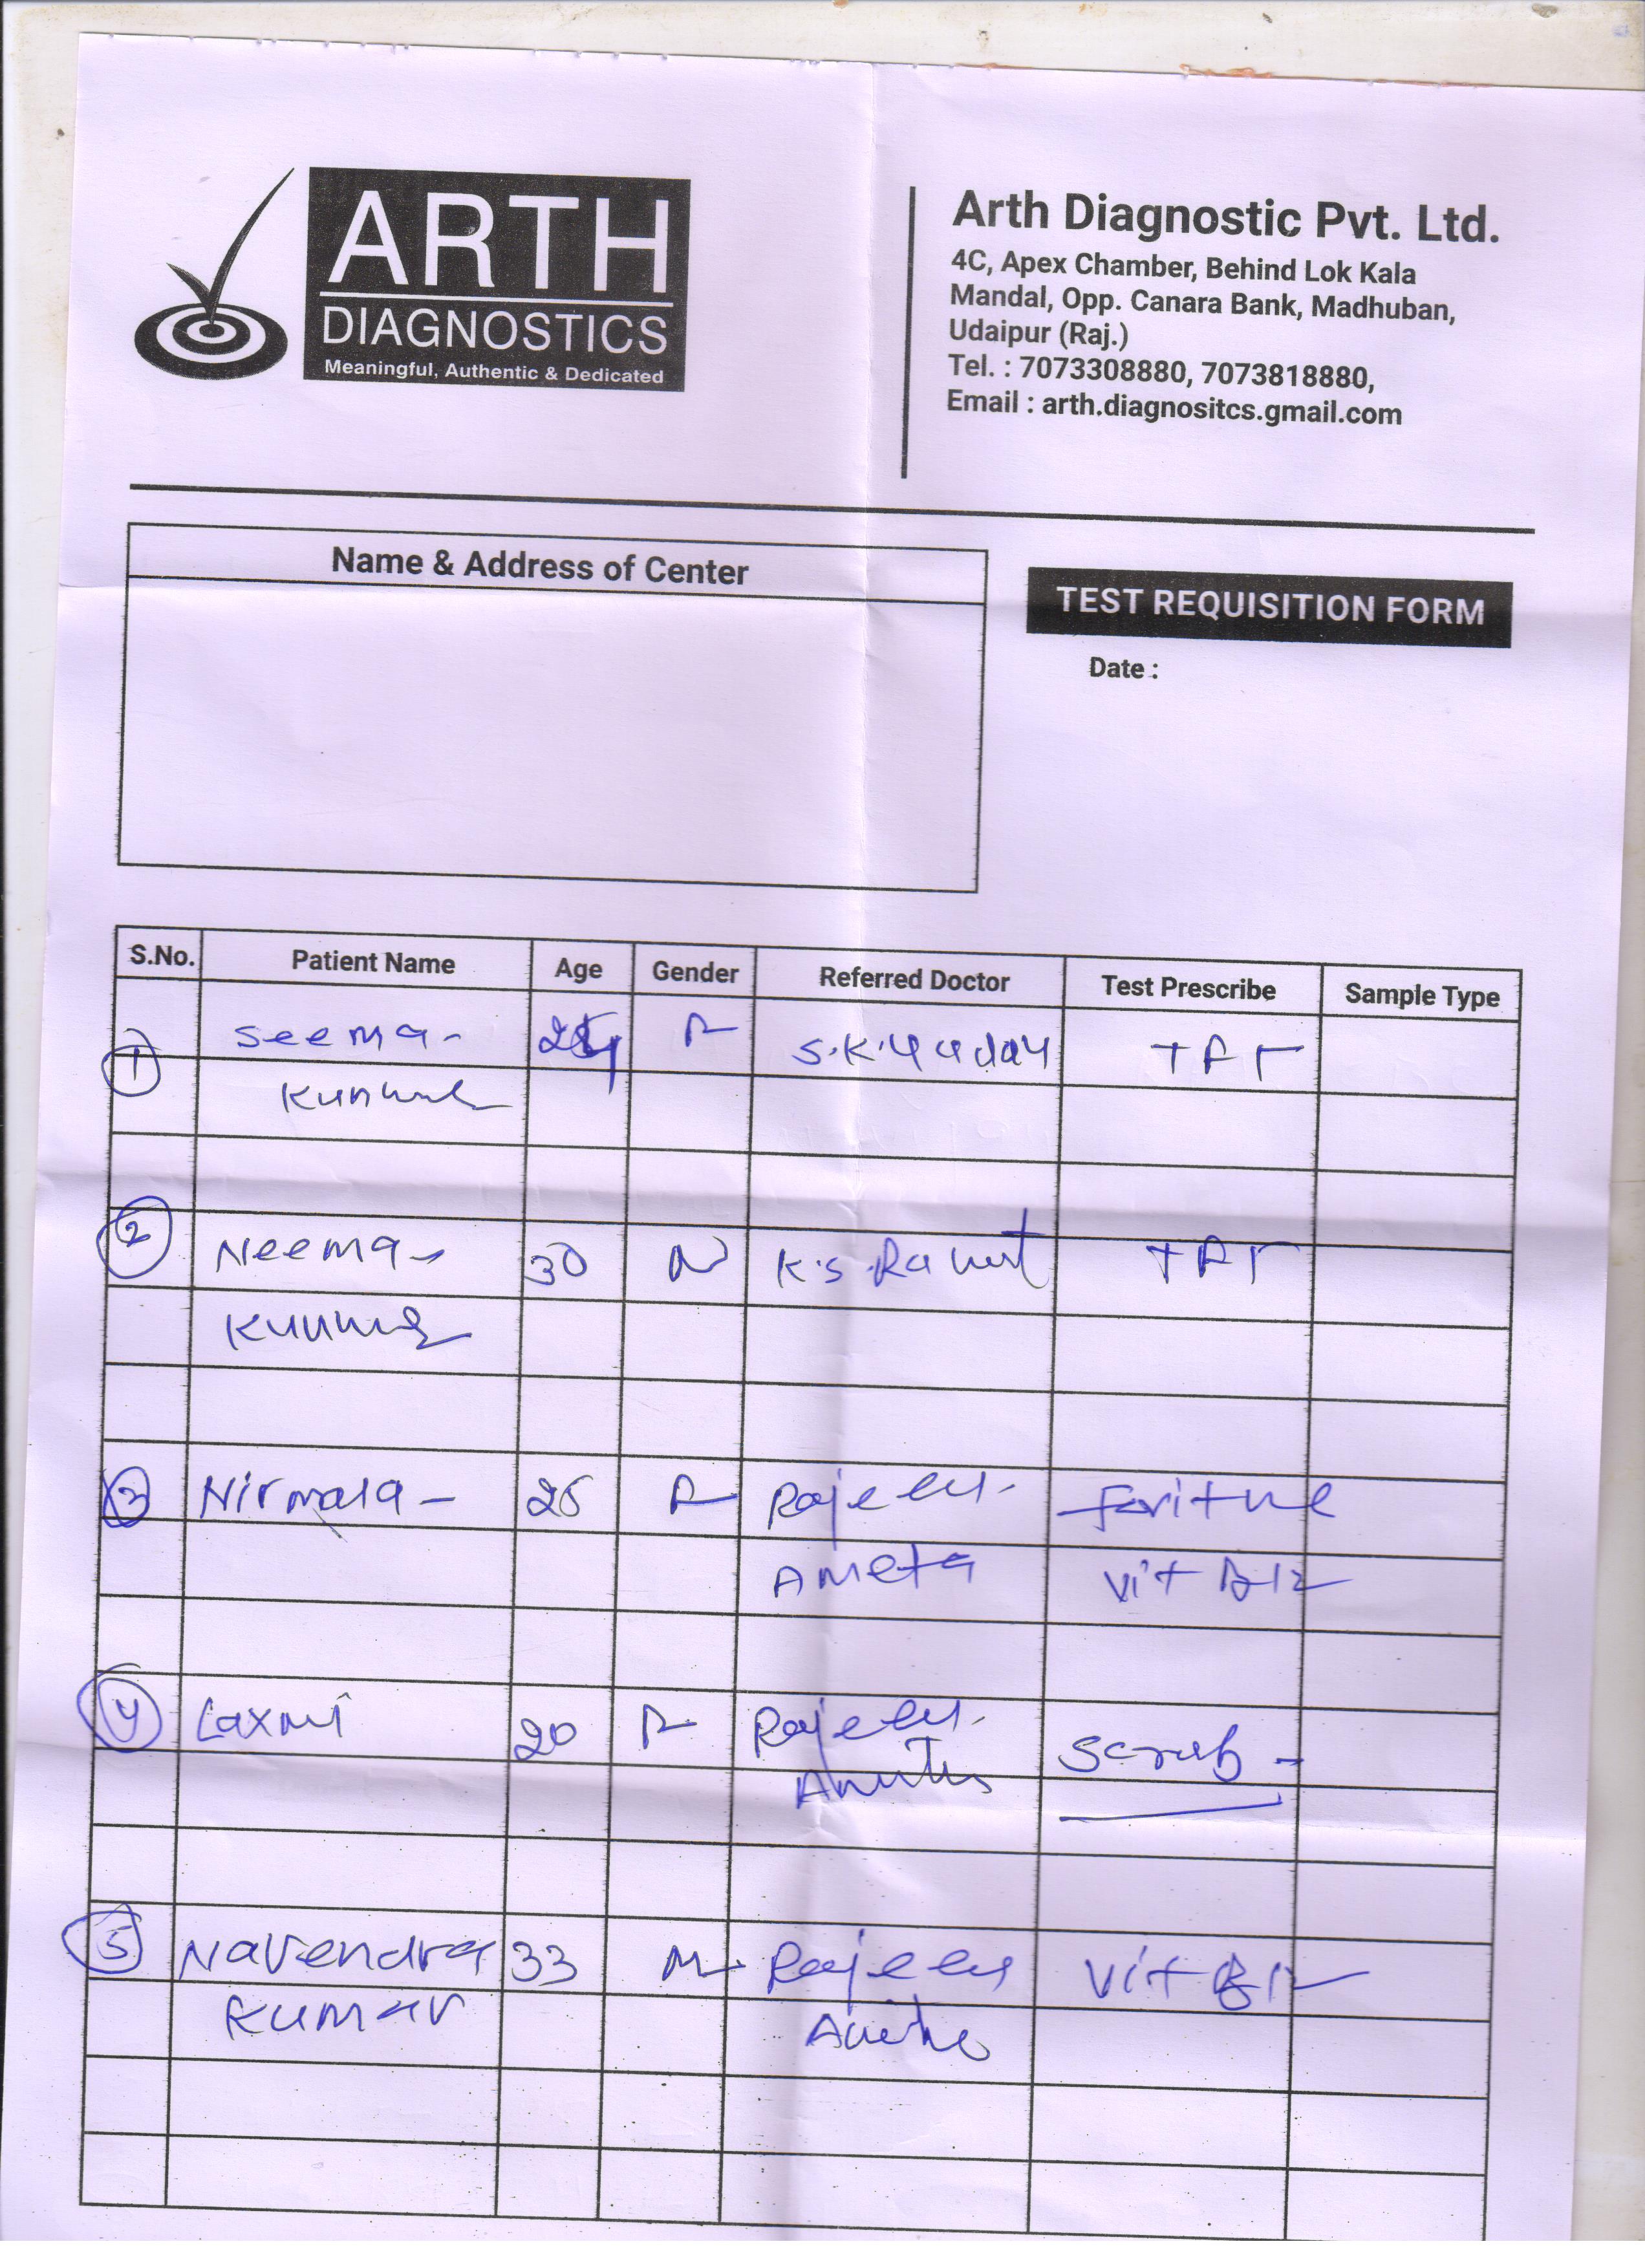 ARTH
DIAGNOSTICS
Meaningful, Authentic & Dedicated
Arth Diagnostic Pvt. Ltd.
4C, Apex Chamber, Behind Lok Kala
Mandal, Opp. Canara Bank, Madhuban,
Udaipur (Raj.)
Tel. : 7073308880, 7073818880,
Email : arth.diagnositcs.gmail.com
Name & Address of Center
TEST REQUISITION FORM
Date :
S.No. Patient Name Age Gender Referred Doctor Test Prescribe Sample Type
1 Seema - F S.K.Yadav TFT
Kunwar
2 Neema - 30 K.S.Rawat TFT
Kunwar
3 Nirmala - 25 F Rajesh Feritine
Ameta Vit B12
4 Laxmi 20 F Rajesh Scrub -
5 Navendra 33 M Rajesh Vit B12
Kumar